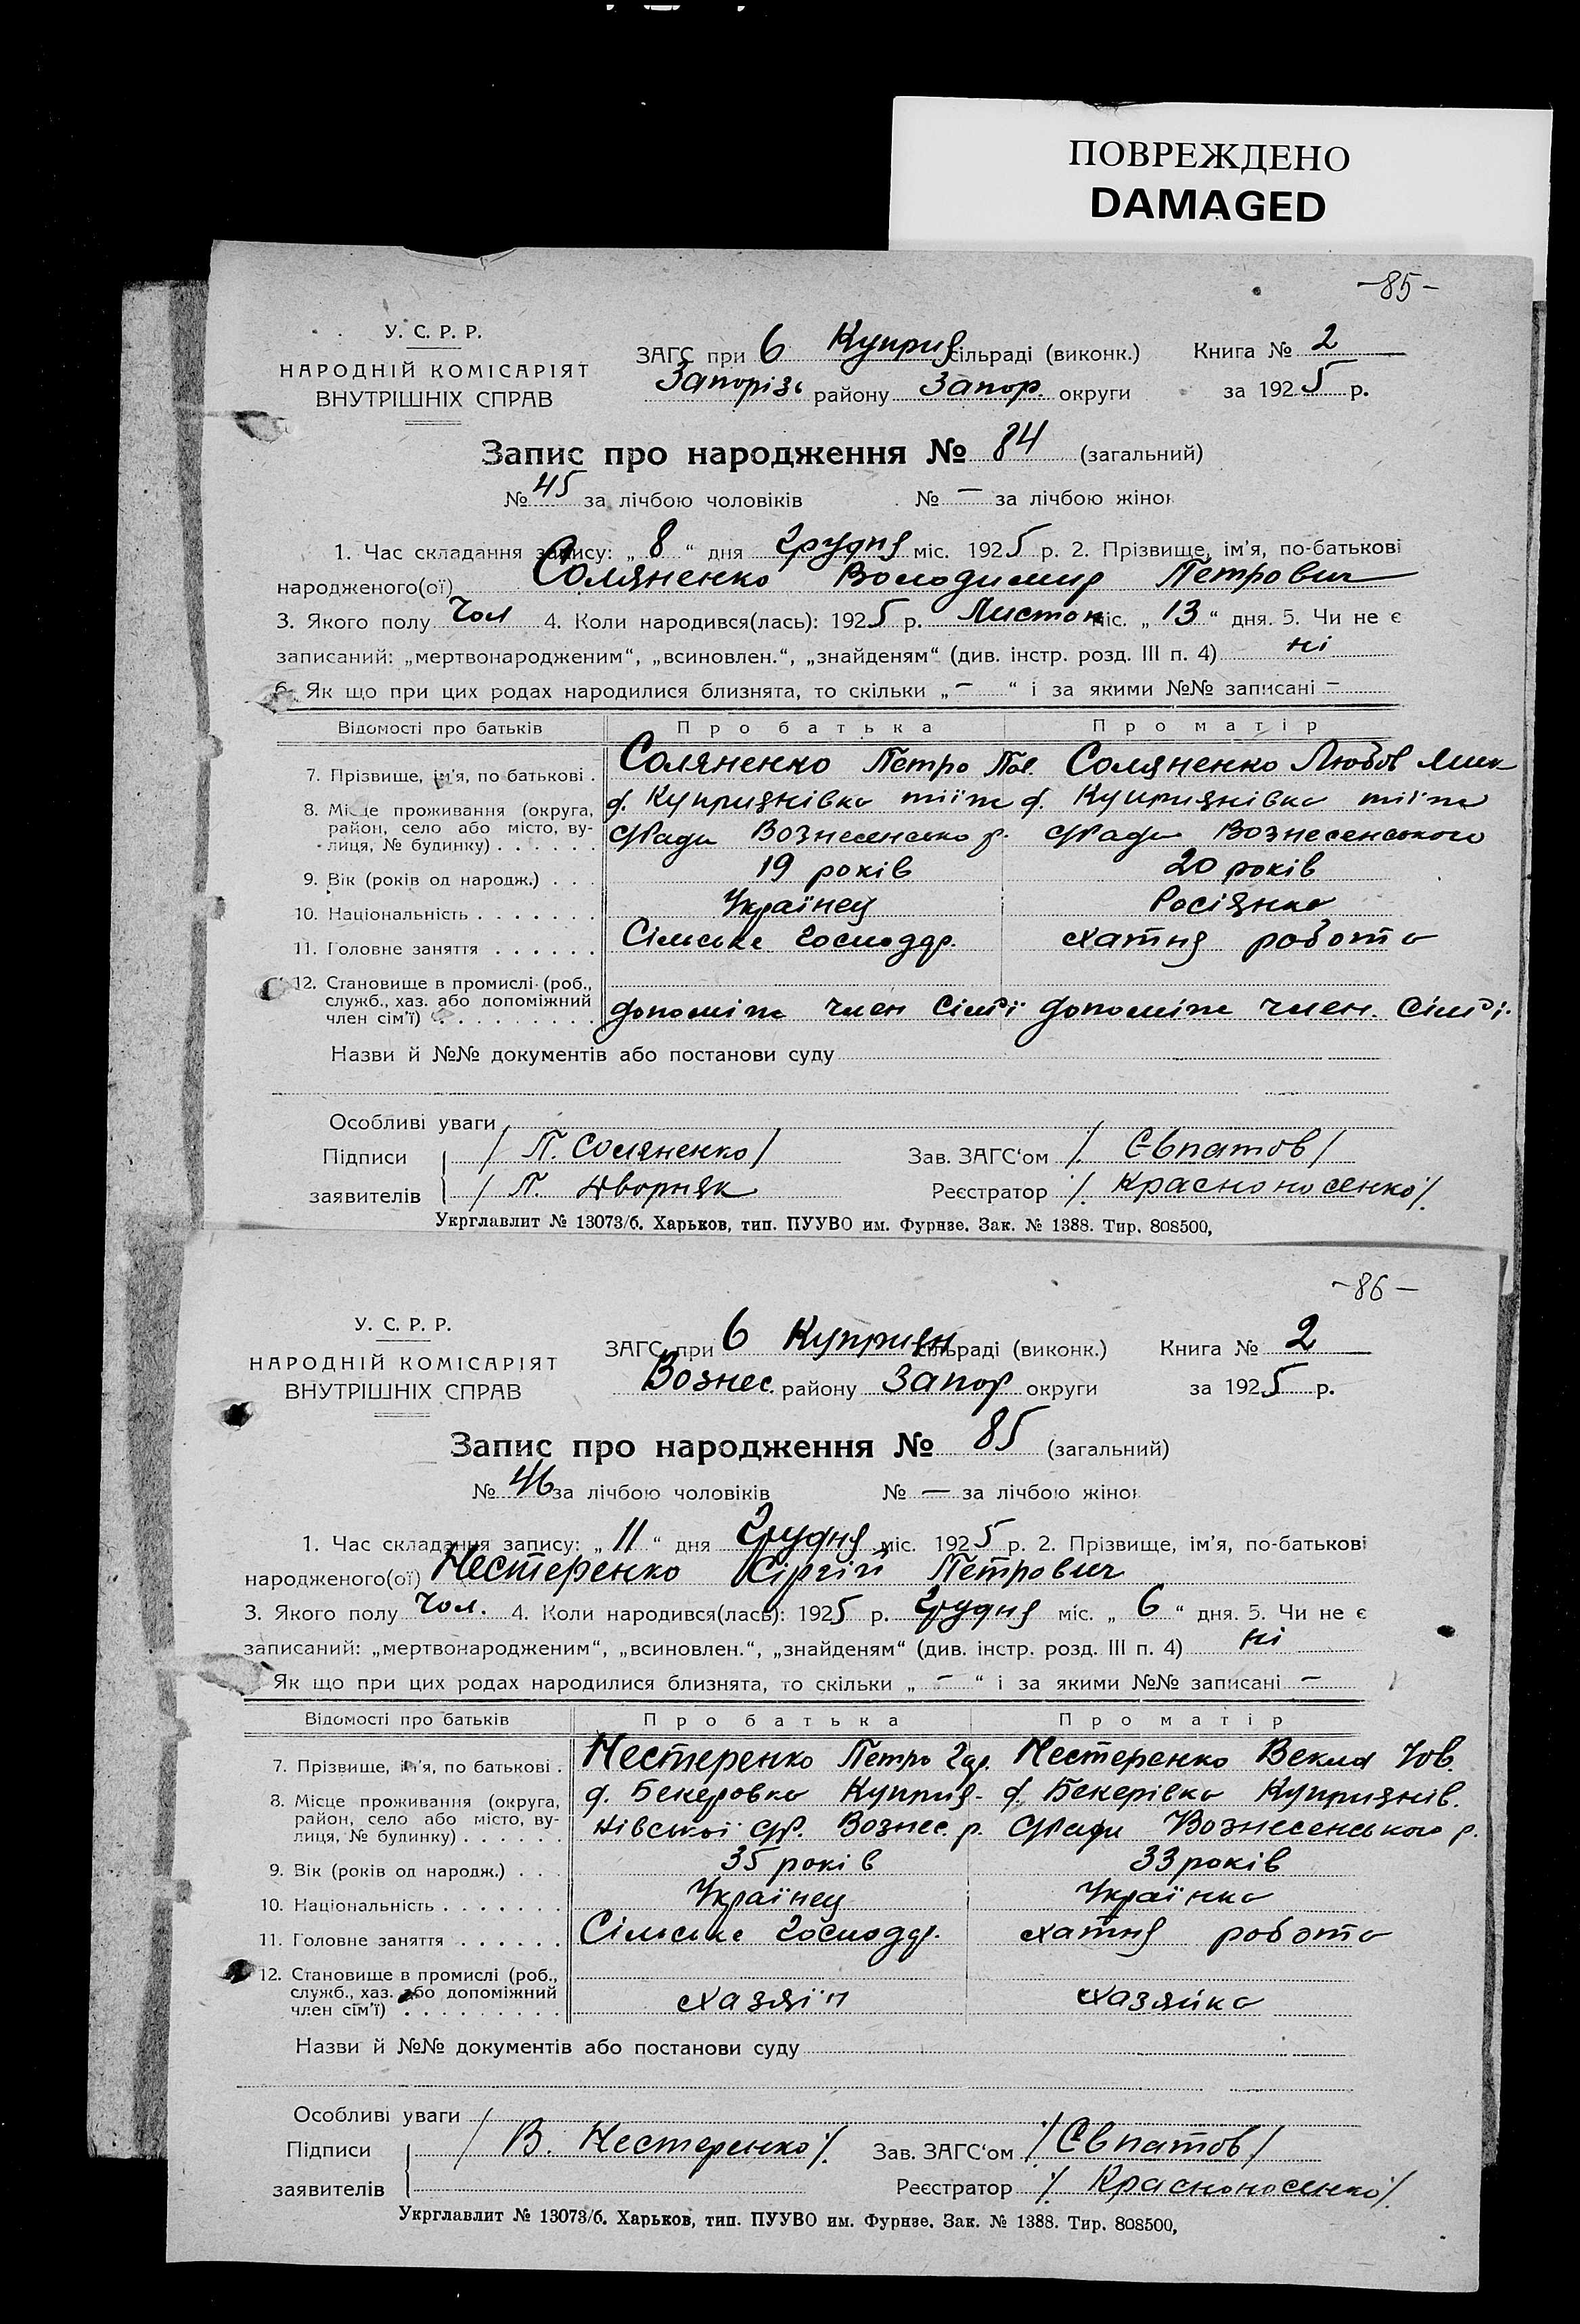 ПОВРЕЖДЕНО
DAMAGED
-85-
У. С. Р. Р.
НАРОДНІЙ КОМІСАРІЯТ
ВНУТРІШНІХ СПРАВ
ЗАГС при 6 Куприя сільраді (виконк.) Книга № 2
Запорізь району Запор. округи за 1925 р.
Запис про народження № 84 (загальний)
№ 45 за лічбою чоловіків № — за лічбою жінок
1. Час складання запису: „ 8 “ дня Грудня міс. 1925 р. 2. Прізвище, ім’я, по-батькові
народженого(ої) Соляненко Володимир Петрович
3. Якого полу чол 4. Коли народився(лась): 1925 р. Листоп міс. „ 13 “ дня. 5. Чи не є
записаний: „мертвонародженим“, „всиновлен.“, „знайденям“ (див. інстр. розд. III п. 4) ні
6. Як що при цих родах народилися близнята, то скільки „ — “ і за якими №№ записані —
Відомості про батьків Про батька Про матір
7. Прізвище, ім’я, по батькові . Соляненко Петро Пав. Соляненко Любов Мик
8. Місце проживання (округа, д. Куприянівка тіїж д. Куприянівка тіїж
район, село або місто, ву- с/Ради Вознесенсько р. с/Ради Вознесенського
лиця, № будинку) . . . . . .
9. Вік (років од народж.) . . . 19 років 20 років
10. Національність . . . . . . . Українец Росіянка
11. Головне заняття . . . . . . Сільське господар. хатня робота
12. Становище в промислі (роб.,
служб., хаз. або допоміжний
член сім’ї) . . . . . . . . . допоміж член сім'ї допоміж член. сім'ї.
Назви й №№ документів або постанови суду
Особливі уваги
Підписи / П. Соляненко / Зав. ЗАГС‘ом /. Євпатов /
заявителів / П. Дворняк Реєстратор /. Красноносенко /.
Укрглавлит № 13073/б. Харьков, тип. ПУУВО им. Фурнзе. Зак. № 1388. Тир. 808500,
-86-
У. С. Р. Р.
НАРОДНІЙ КОМІСАРІЯТ
ВНУТРІШНІХ СПРАВ
ЗАГС при 6 Куприян сільраді (виконк.) Книга № 2
Вознес. району Запор округи за 1925 р.
Запис про народження № 85 (загальний)
№ 46 за лічбою чоловіків № — за лічбою жінок
1. Час складання запису: „ 11 “ дня Грудня міс. 1925 р. 2. Прізвище, ім’я, по-батькові
народженого(ої) Нестеренко Сіргій Петрович
3. Якого полу чол. 4. Коли народився(лась): 1925 р. Грудня міс. „ 6 “ дня. 5. Чи не є
записаний: „мертвонародженим“, „всиновлен.“, „знайденям“ (див. інстр. розд. III п. 4) ні
Як що при цих родах народилися близнята, то скільки „ — “ і за якими №№ записані —
Відомості про батьків Про батька Про матір
7. Прізвище, ім’я, по батькові . Нестеренко Петро Нестеренко Векла
8. Місце проживання (округа, д. Бекеровка Куприя- д. Бекерівка Куприянів.
район, село або місто, ву- нівської с/Р. Вознес. р. с/Ради Вознесенського р.
лиця, № будинку) . . . . . .
9. Вік (років од народж.) . . . 35 років 33 років
10. Національність . . . . . . . Українец Українка
11. Головне заняття . . . . . . Сільське господар. хатня робота
12. Становище в промислі (роб.,
служб., хаз. або допоміжний
член сім’ї) . . . . . . . . . хазяїн хазяйка
Назви й №№ документів або постанови суду
Особливі уваги
Підписи / В. Нестеренко /. Зав. ЗАГС‘ом /. Євпатов /
заявителів Реєстратор /. Красноносенко /.
Укрглавлит № 13073/б. Харьков, тип. ПУУВО им. Фурнзе. Зак. № 1388. Тир. 808500,